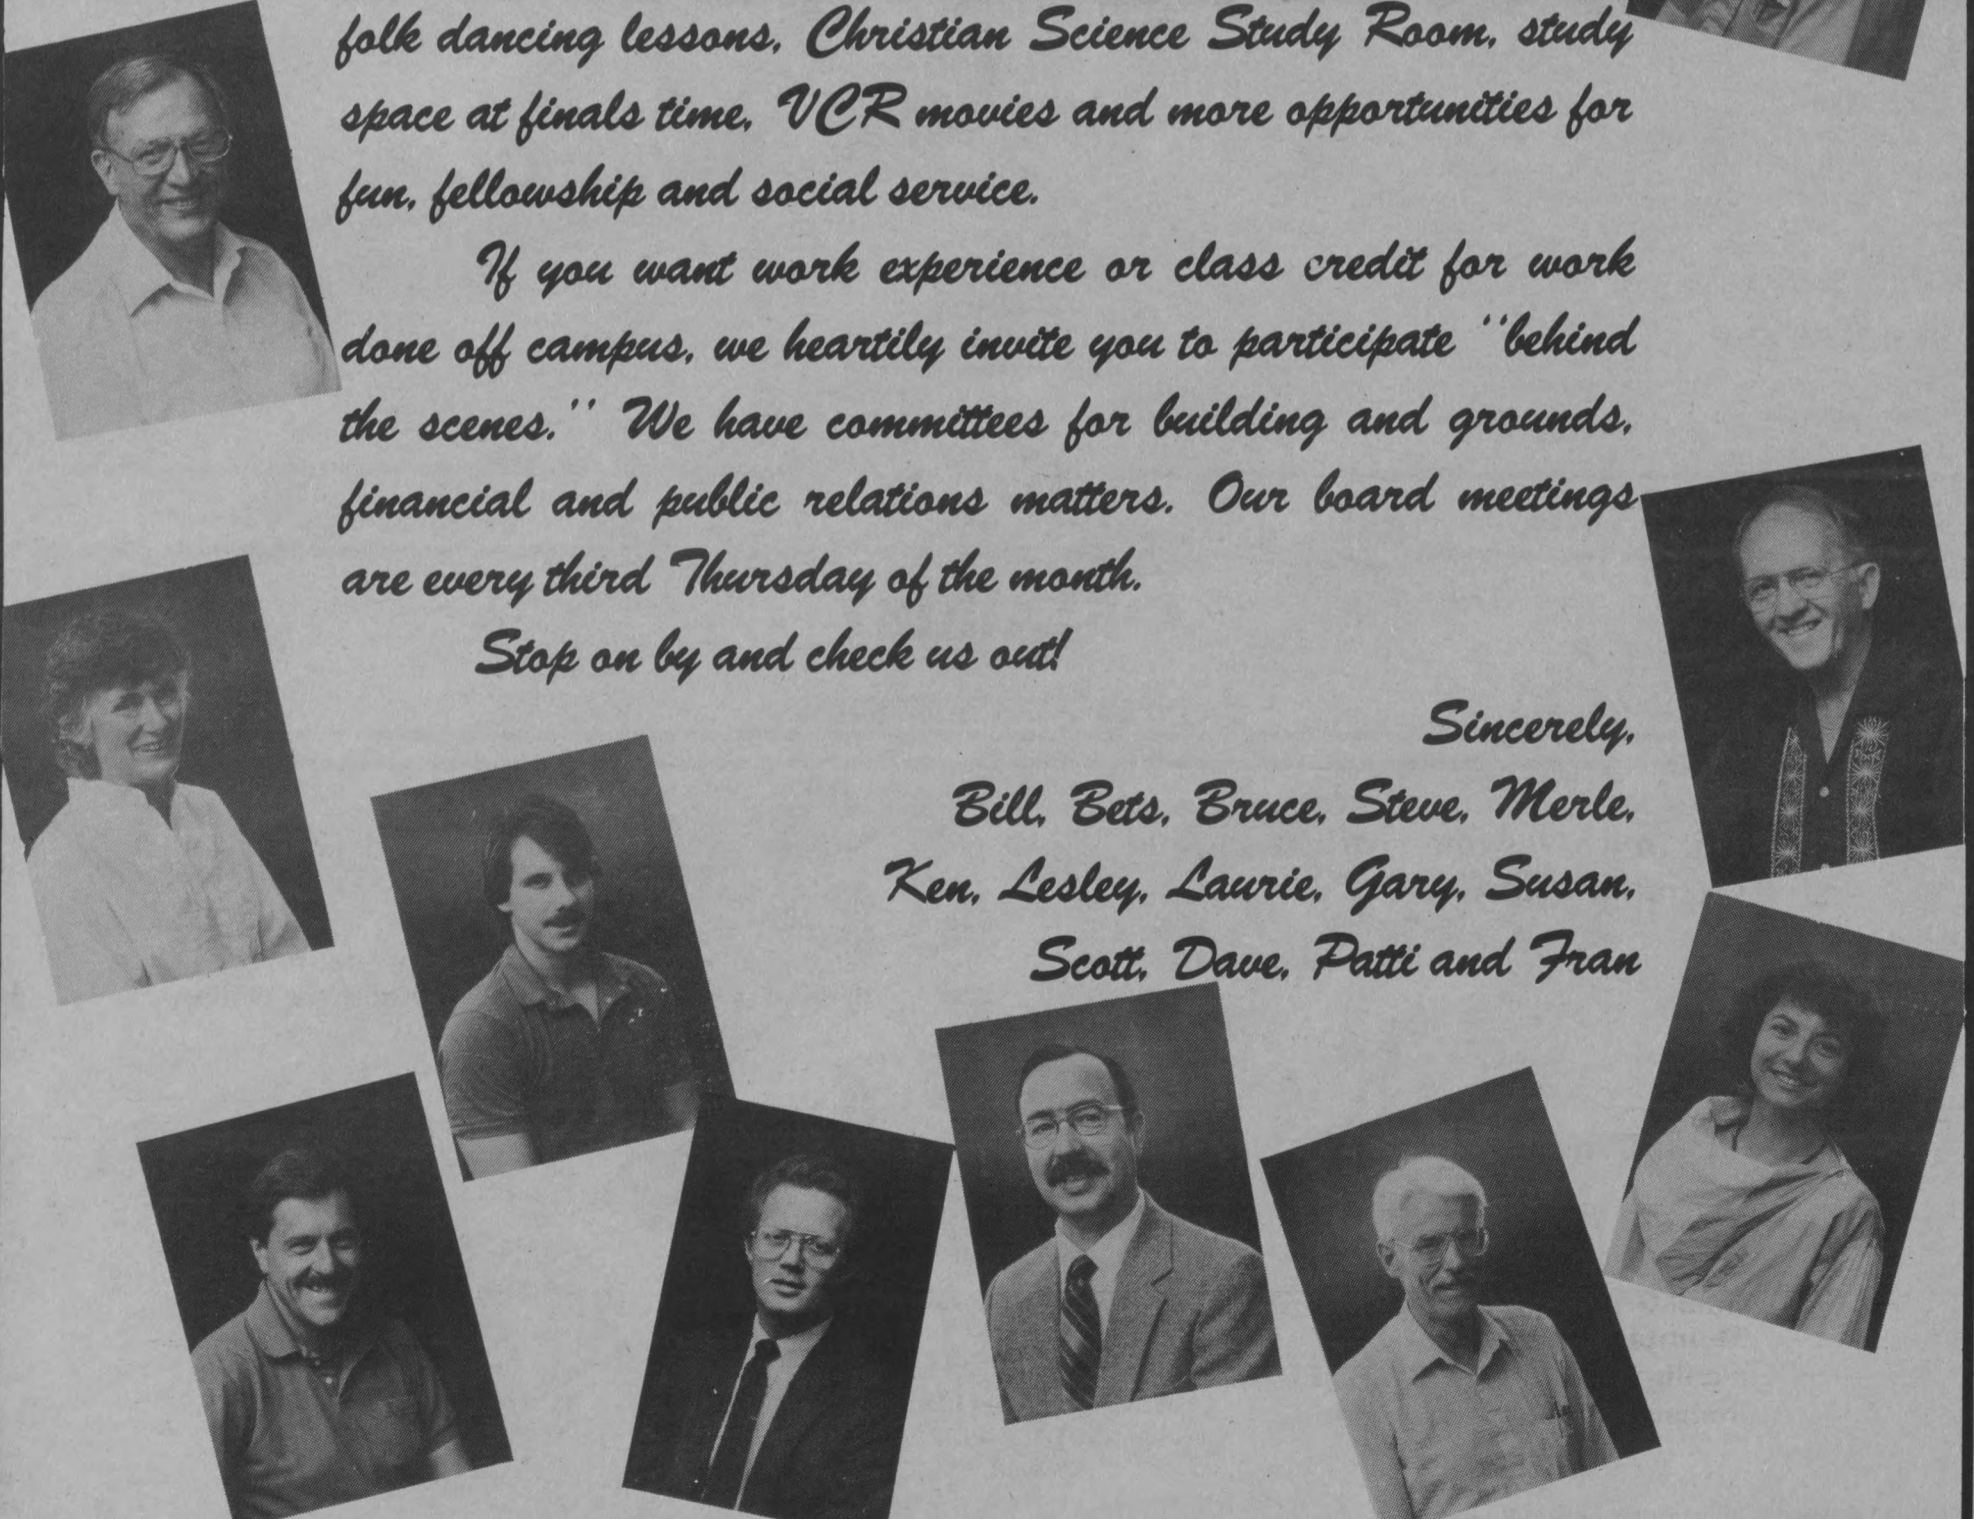 folk dancing lessons, Christian Science Study Room, study
space at finals time, VCR movies and more opportunities for
fun, fellowship and social service.
If you want work experience or class credit for work
done off campus, we heartily invite you to participate "behind
the scenes." We have committees for building and grounds,
financial and public relations matters. Our board meetings
are every third Thursday of the month.
Stop on by and check us out!
Sincerely,
Bill, Bets, Bruce, Steve, Merle,
Ken, Lesley, Laurie, Gary, Susan,
Scott, Dave, Patti and Fran